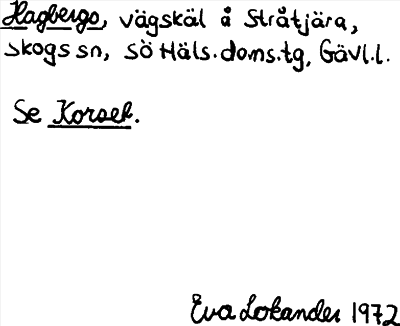 Hagbergs, vägskäl å Stråtjära,
Skogs sn, SÖ Häls.doms.tg, Gävl.l.
Se Korset.
Eva Lokander 1972